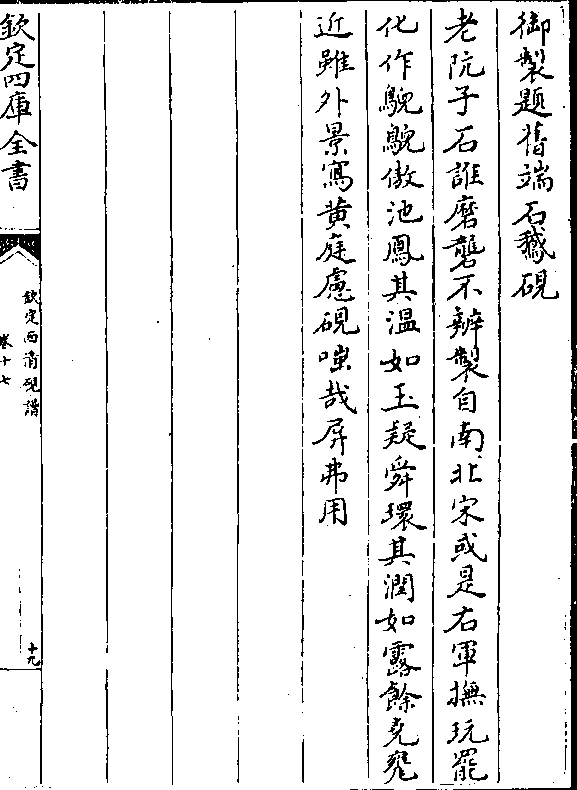 御製題舊端石鵞硯
老阬子石誰磨礱不辨製自南北宋或是右軍撫玩罷
化作鶃鶃傲池鳳其温如玉疑舜環其潤如露餘堯甕
近雖外景寫黄庭慮硯嗤哉屏弗用
欽定四庫全書
欽定西清硯譜
卷十七
十九